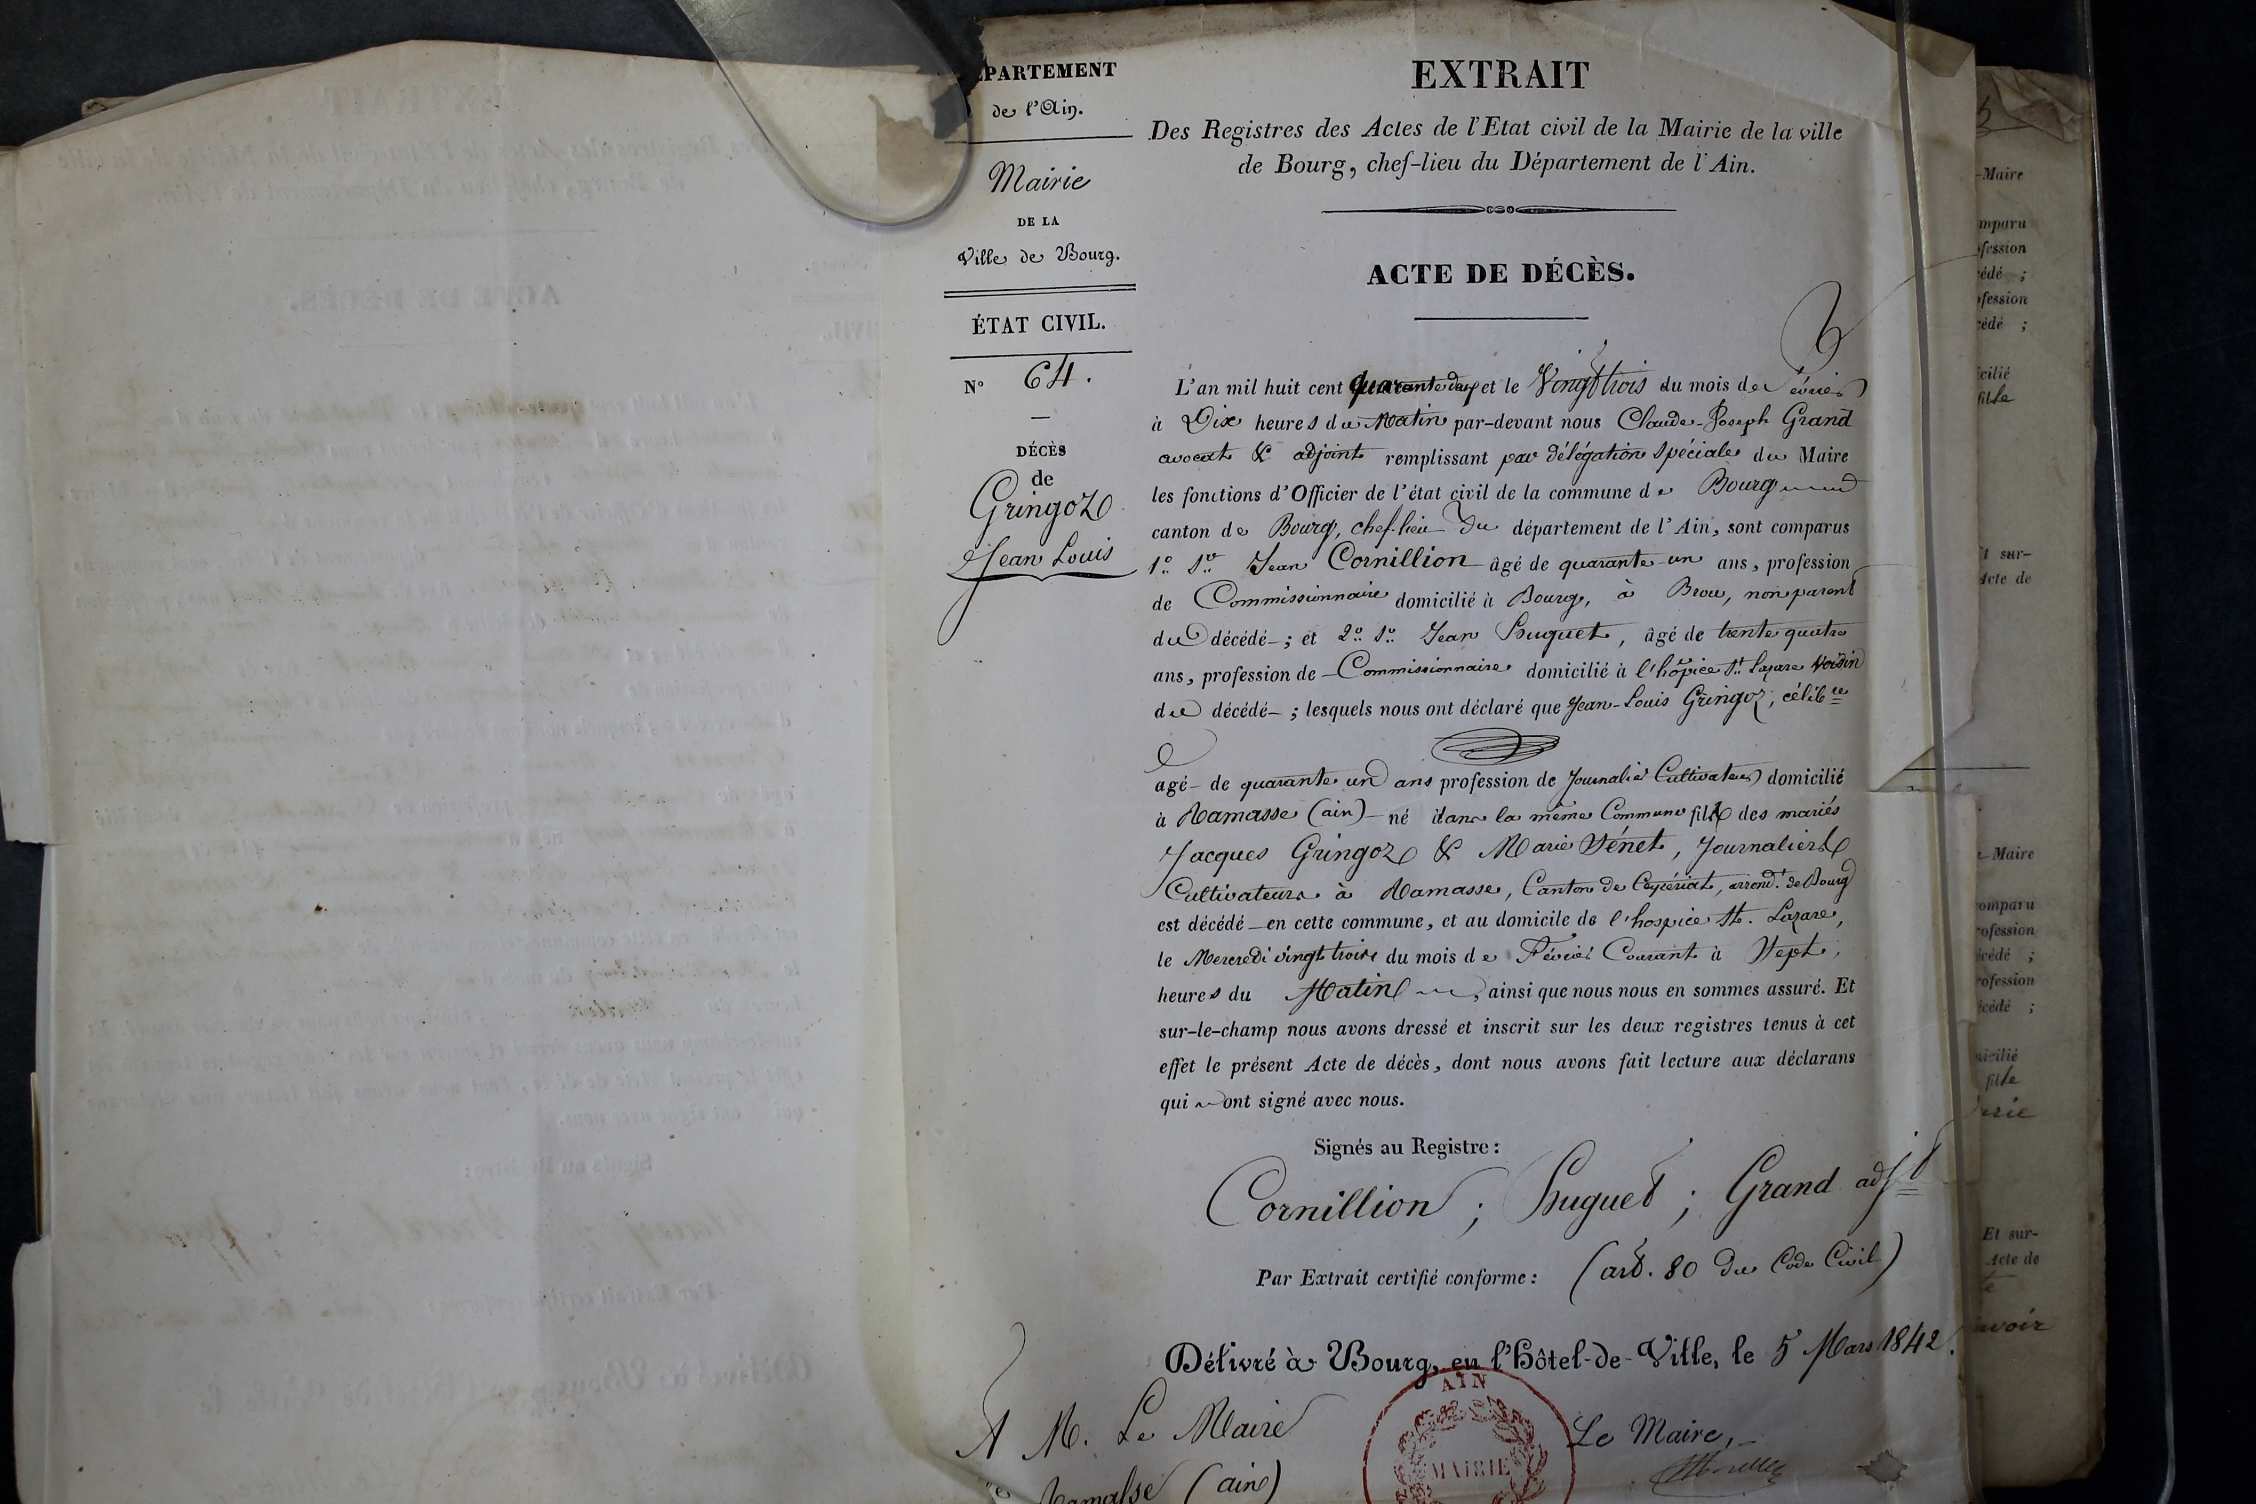 ÉPARTEMENT
de l'Ain.
Mairie
DE LA
Ville de Bourg.
ÉTAT CIVIL.
N° 64.
DÉCÈS
de
Gringoz
Jean Louis
EXTRAIT
Des Registres des Actes de l'Etat civil de la Mairie de la ville
de Bourg, chef-lieu du Département de l'Ain.
ACTE DE DÉCÈS.
L'an mil huit cent quarante deux et le Vingt trois du mois de Février
à Dix heures du Matin par-devant nous Claude-Joseph Grand
avocat & adjoint remplissant par délégation spéciale du Maire
les fonctions d'Officier de l'état civil de la commune de Bourg
canton de Bourg, chef-lieu du département de l'Ain, sont comparus
1° Sr Jean Cornillion âgé de quarante-un ans, profession
de Commissionnaire domicilié à Bourg, à Brou, non parent
du décédé ; et 2° Sr Jean Huguet, âgé de trente quatre
ans, profession de Commissionnaire domicilié à l'hospice St Lazare voisin
du décédé ; lesquels nous ont déclaré que Jean-Louis Gringoz, célibre
agé de quarante un ans profession de Journalier Cultivateur domicilié
à Ramasse (ain) né dans la même Commune fils des mariés
Jacques Gringoz & Marie Vénet, Journaliers
Cultivateurs à Ramasse, Canton de Ceyzériat, arrondt de Bourg
est décédé en cette commune, et au domicile de l'hospice St. Lazare,
le Mercredi vingt trois du mois de Février Courant à Sept
heures du Matin, ainsi que nous nous en sommes assuré. Et
sur-le-champ nous avons dressé et inscrit sur les deux registres tenus à cet
effet le présent Acte de décès, dont nous avons fait lecture aux déclarans
qui ont signé avec nous.
Signés au Registre :
Cornillion ; Huguet ; Grand adjt
Par Extrait certifié conforme : (art. 80 du Code Civil)
Délivré à Bourg, en l'Hôtel-de-Ville, le 5 Mars 1842.
A M. Le Maire
Le Maire,
Ramasse (ain)
AIN
MAIRIE
-Maire
mparu
fession
cédé ;
fession
cédé ;
icilié
fille
Et sur-
Acte de
Maire
comparu
rofession
écédé ;
rofession
écédé ;
micilié
fille
Et sur-
Acte de